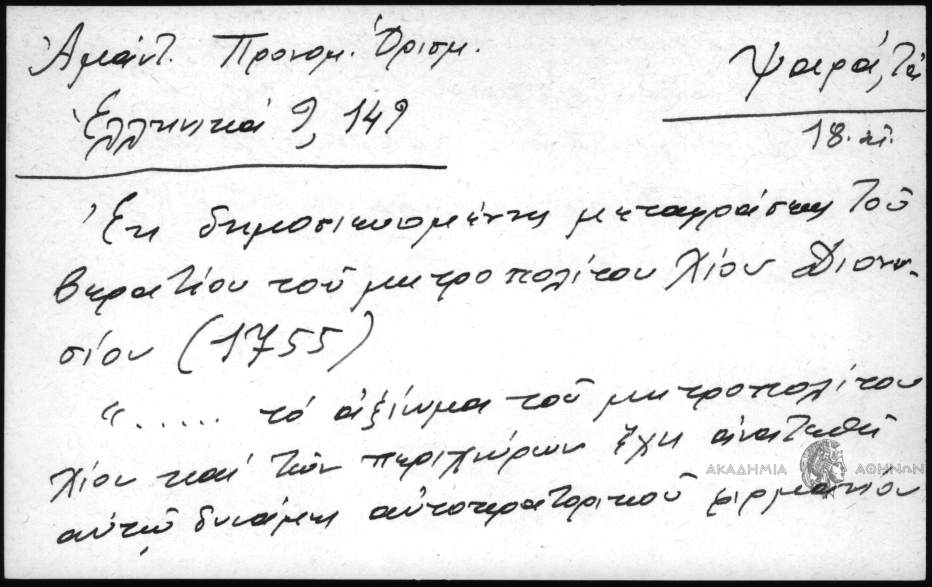 Ἀμάντ. Προνομ. Ὁρισμ.
Ἑλληνικά 9, 149
Ψαρά, τά
18. αἰ.
Ἐκ δημοσιευομένης μεταφράσεως τοῦ
βερατίου τοῦ μητροπολίτου Χίου Διονυ-
σίου (1755)
"...... τό ἀξίωμα τοῦ μητροπολίτου
Χίου καί τῶν περιχώρων ἔχει ἀνατεθῆ
αὐτῷ δυνάμει αὐτοκρατορικοῦ φιρμανίου
ΑΚΑΔΗΜΙΑ ΑΘΗΝΩΝ